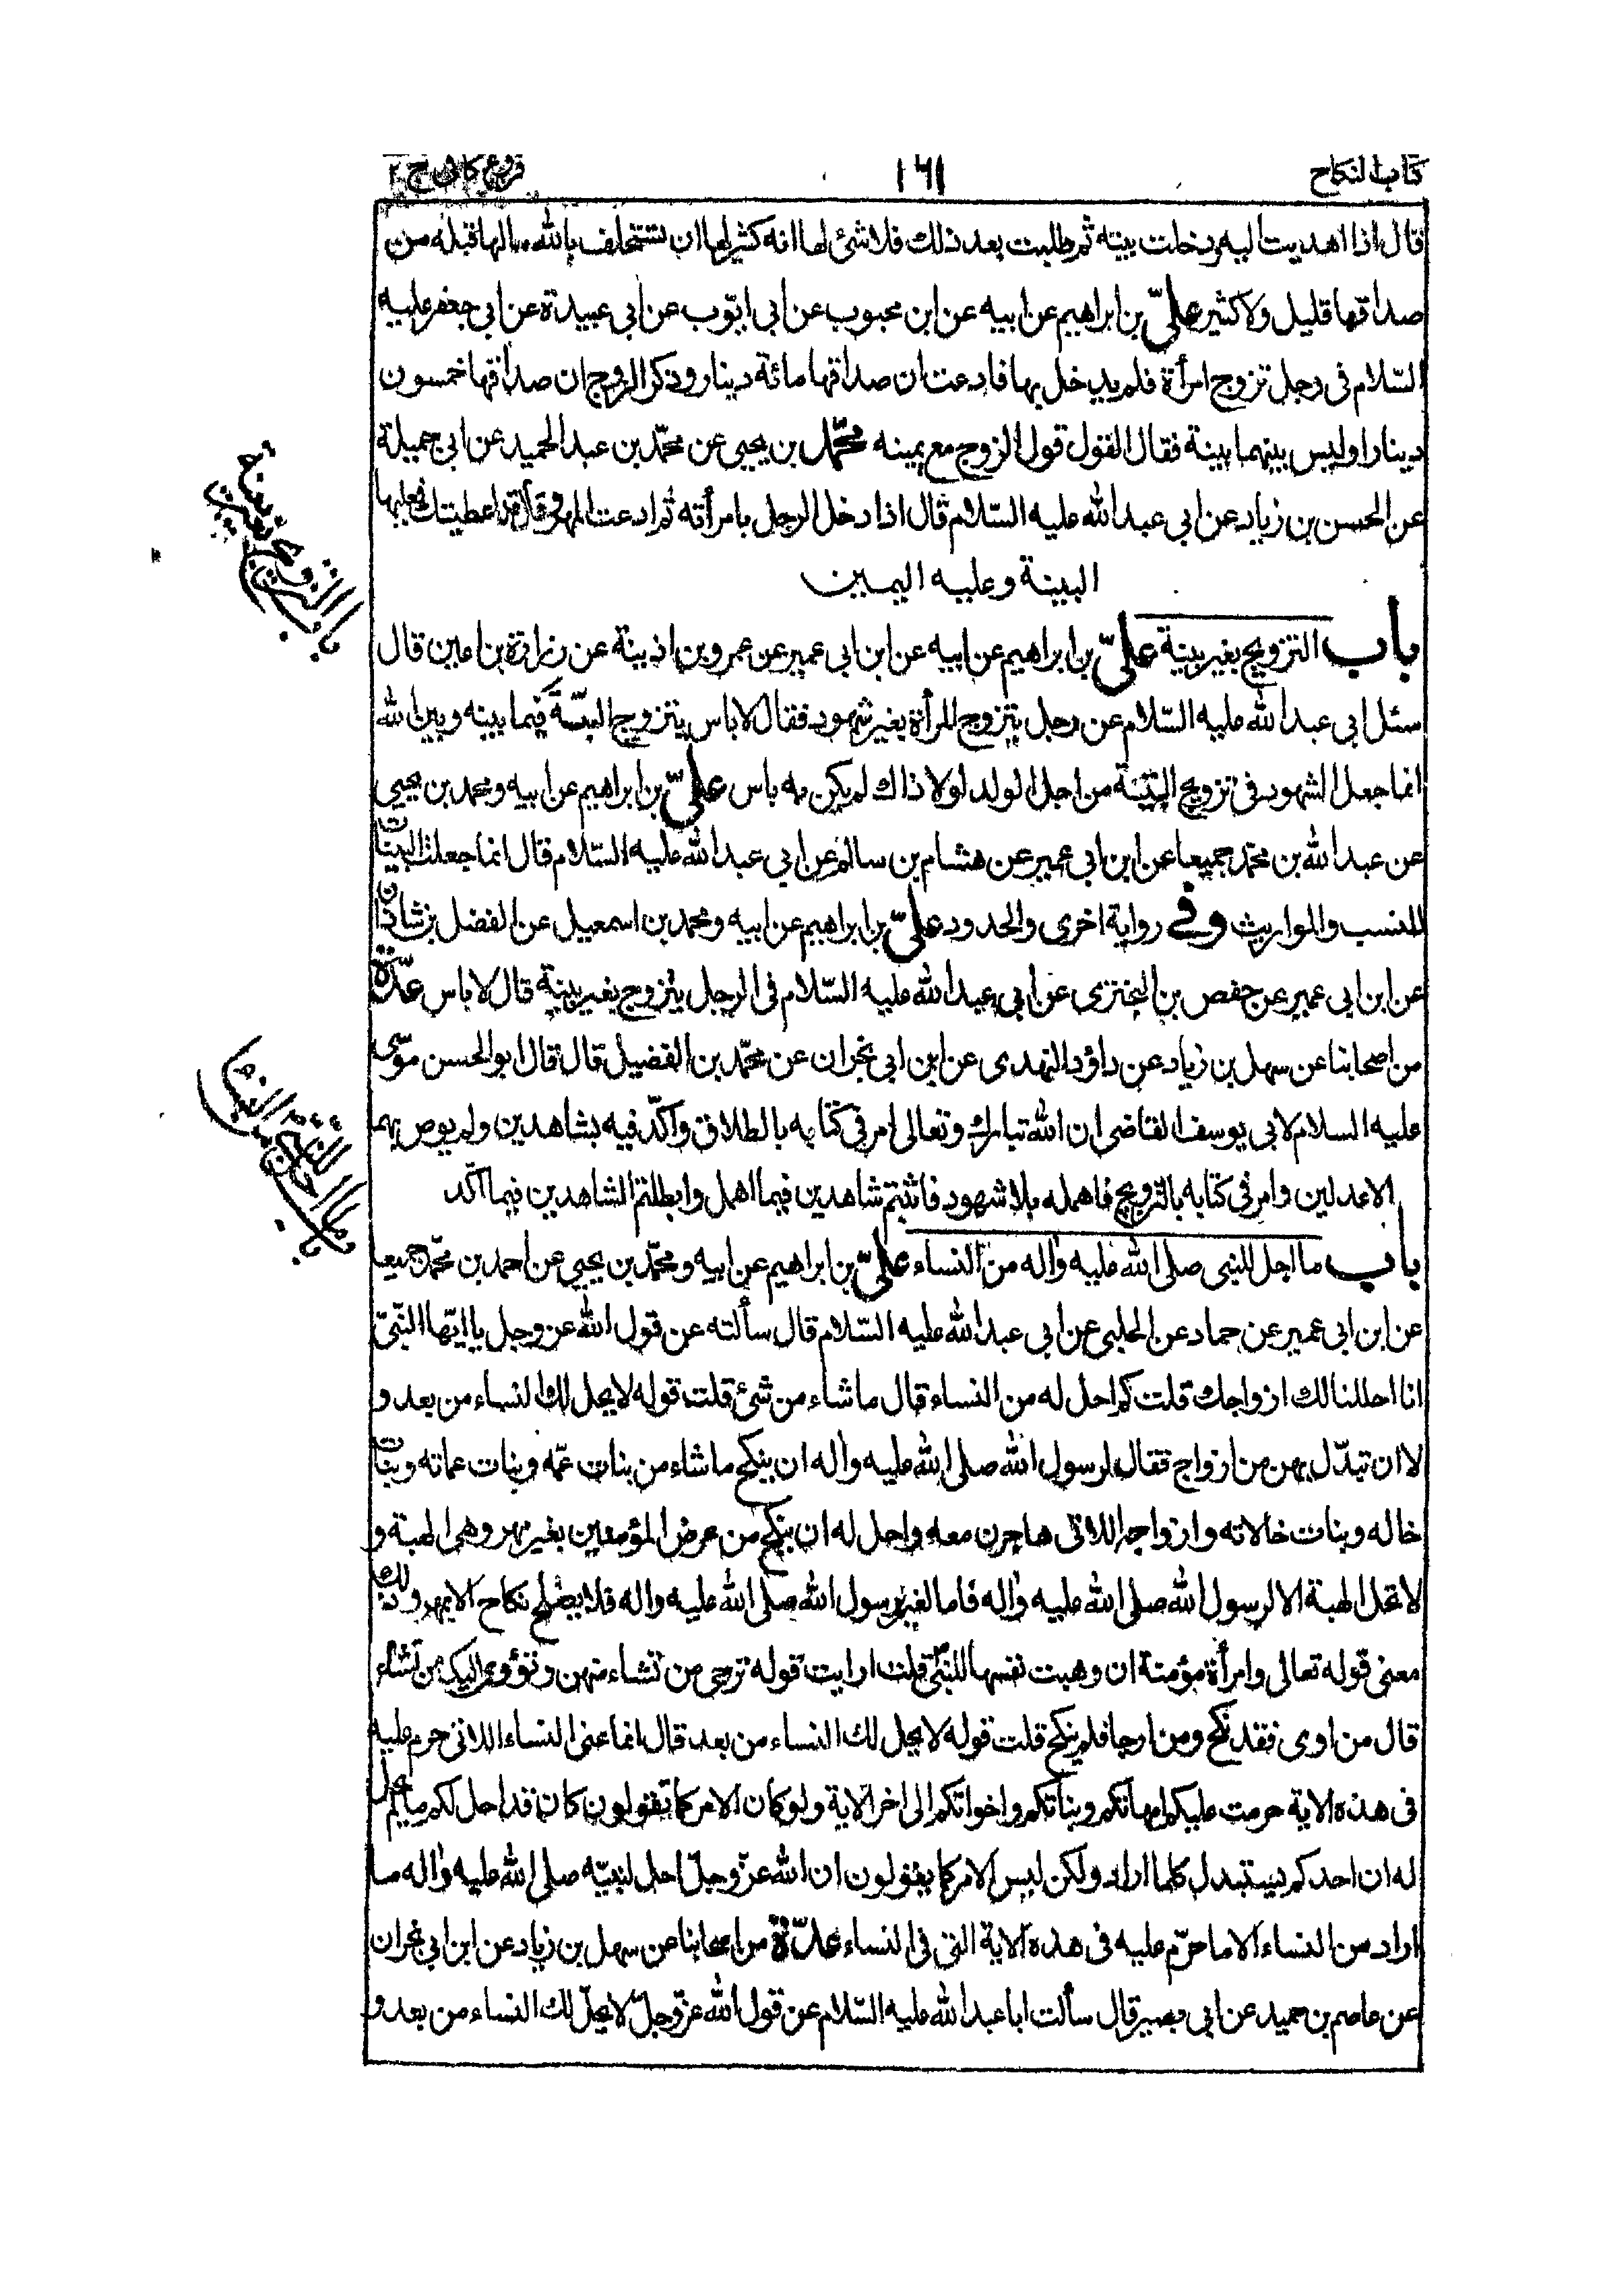 كتاب النكاح
١٦١
فروع كافى ج ٢
قال اذا اهديت اليه ودخلت بيته ثم طلبت بعد ذلك فلا شئ لها انه كثير لها ان تستحلف بالله مالها قبله من
صداقها قليل ولا كثير علىّ بن ابراهيم عن ابيه عن ابن محبوب عن ابى ايّوب عن ابى عبيدة عن ابى جعفر عليه
السّلام فى رجل تزوج امرأة فلم يدخل بها فادعت ان صداقها مائة دينار وذكر الزوج ان صداقها خمسون
دينارا وليس بينهما بينة فقال القول قول الزوج مع يمينه محمّد بن يحيى عن محمّد بن عبد الحميد عن ابى جميلة
عن الحسن بن زياد عن ابى عبد الله عليه السّلام قال اذا دخل الرجل بامرأته ثم ادعت المهر وقال قد اعطيتك فعليها
البينة وعليه اليمين
باب التزويج بغير بينة علىّ بن ابراهيم عن ابيه عن ابن ابى عمير عن عمرو بن اذينة عن زرارة بن اعين قال
سئل ابى عبد الله عليه السّلام عن رجل يتزوج المرأة بغير شهود فقال لا باس يتزوج البتّة فيما بينه وبين الله
انما جعل الشهود فى تزويج البتّة من اجل الولد لولا ذاك لم يكن به باس علىّ بن ابراهيم عن ابيه ومحمد بن يحيى
عن عبد الله بن محمّد جميعا عن ابن ابى عمير عن هشام بن سالم عن ابى عبد الله عليه السّلام قال انما جعلت البينات
للنسب والمواريث وفى رواية اخرى والحدود علىّ بن ابراهيم عن ابيه ومحمد بن اسمعيل عن الفضل بن شاذان
عن ابن ابى عمير عن حفص بن البخترى عن ابى عبد الله عليه السّلام فى الرجل يتزوج بغير بينة قال لا باس عدّة
من اصحابنا عن سهل بن زياد عن داؤد النهدى عن ابن ابى نجران عن محمّد بن الفضيل قال قال ابو الحسن موسى
عليه السلام لابى يوسف القاضى ان الله تبارك وتعالى امر فى كتابه بالطلاق واكّد فيه بشاهدين ولم يوص بهما
الا عدلين وامر فى كتابه بالتزويج فاهمله بلا شهود فاثبتم شاهدين فيما اهمل وابطلتم الشاهدين فيما اكّد
باب ما احل للنبى صلى الله عليه واله من النساء علىّ بن ابراهيم عن ابيه ومحمّد بن يحيى عن احمد بن محمّد جميعا
عن ابن ابى عمير عن حماد عن الحلبى عن ابى عبد الله عليه السّلام قال سألته عن قول الله عز وجل يا ايّها النّبىّ
انا احللنا لك ازواجك قلت كم احل له من النساء قال ما شاء من شئ قلت قوله لا يحل لك النساء من بعد و
لا ان تبدّل بهن من ازواج فقال لرسول الله صلى الله عليه واله ان ينكح ما شاء من بنات عمّه وبنات عماته وبنات
خاله وبنات خالاته وازواجه اللاتى هاجرن معه واحل له ان ينكح من عرض المؤمنين بغير مهر وهى الهبة و
لا تحل الهبة الا لرسول الله صلى الله عليه واله فاما لغير رسول الله صلى الله عليه واله فلا يصلح نكاح الا بمهر وذلك
معنى قوله تعالى وامرأة مؤمنة ان وهبت نفسها للنبىّ قلت ارايت قوله ترجى من تشاء منهن وتؤوى اليك من تشاء
قال من اوى فقد نكح ومن ارجا فلم ينكح قلت قوله لا يحل لك النساء من بعد قال انما عنى النساء اللاتى حرم عليه
فى هذه الاية حرمت عليكم امهاتكم وبناتكم واخواتكم الى اخر الاية ولو كان الامر كما تقولون كان قد احل لكم ما لم يحل
له ان احدكم يستبدل كلما اراد ولكن ليس الامر كما يقولون ان الله عزّ وجلّ احل لنبيّه صلى الله عليه واله ما
اراد من النساء الا ما حرّم عليه فى هذه الاية التى فى النساء عدّة من اصحابنا عن سهل بن زياد عن ابن ابى نجران
عن عاصم بن حميد عن ابى بصير قال سألت ابا عبد الله عليه السّلام عن قول الله عزّ وجلّ لا يحلّ لك النساء من بعد و